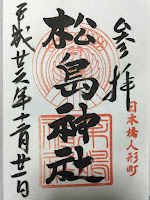 参拝
日本橋人形町
松島神社
平成廿六年十二月廿二日